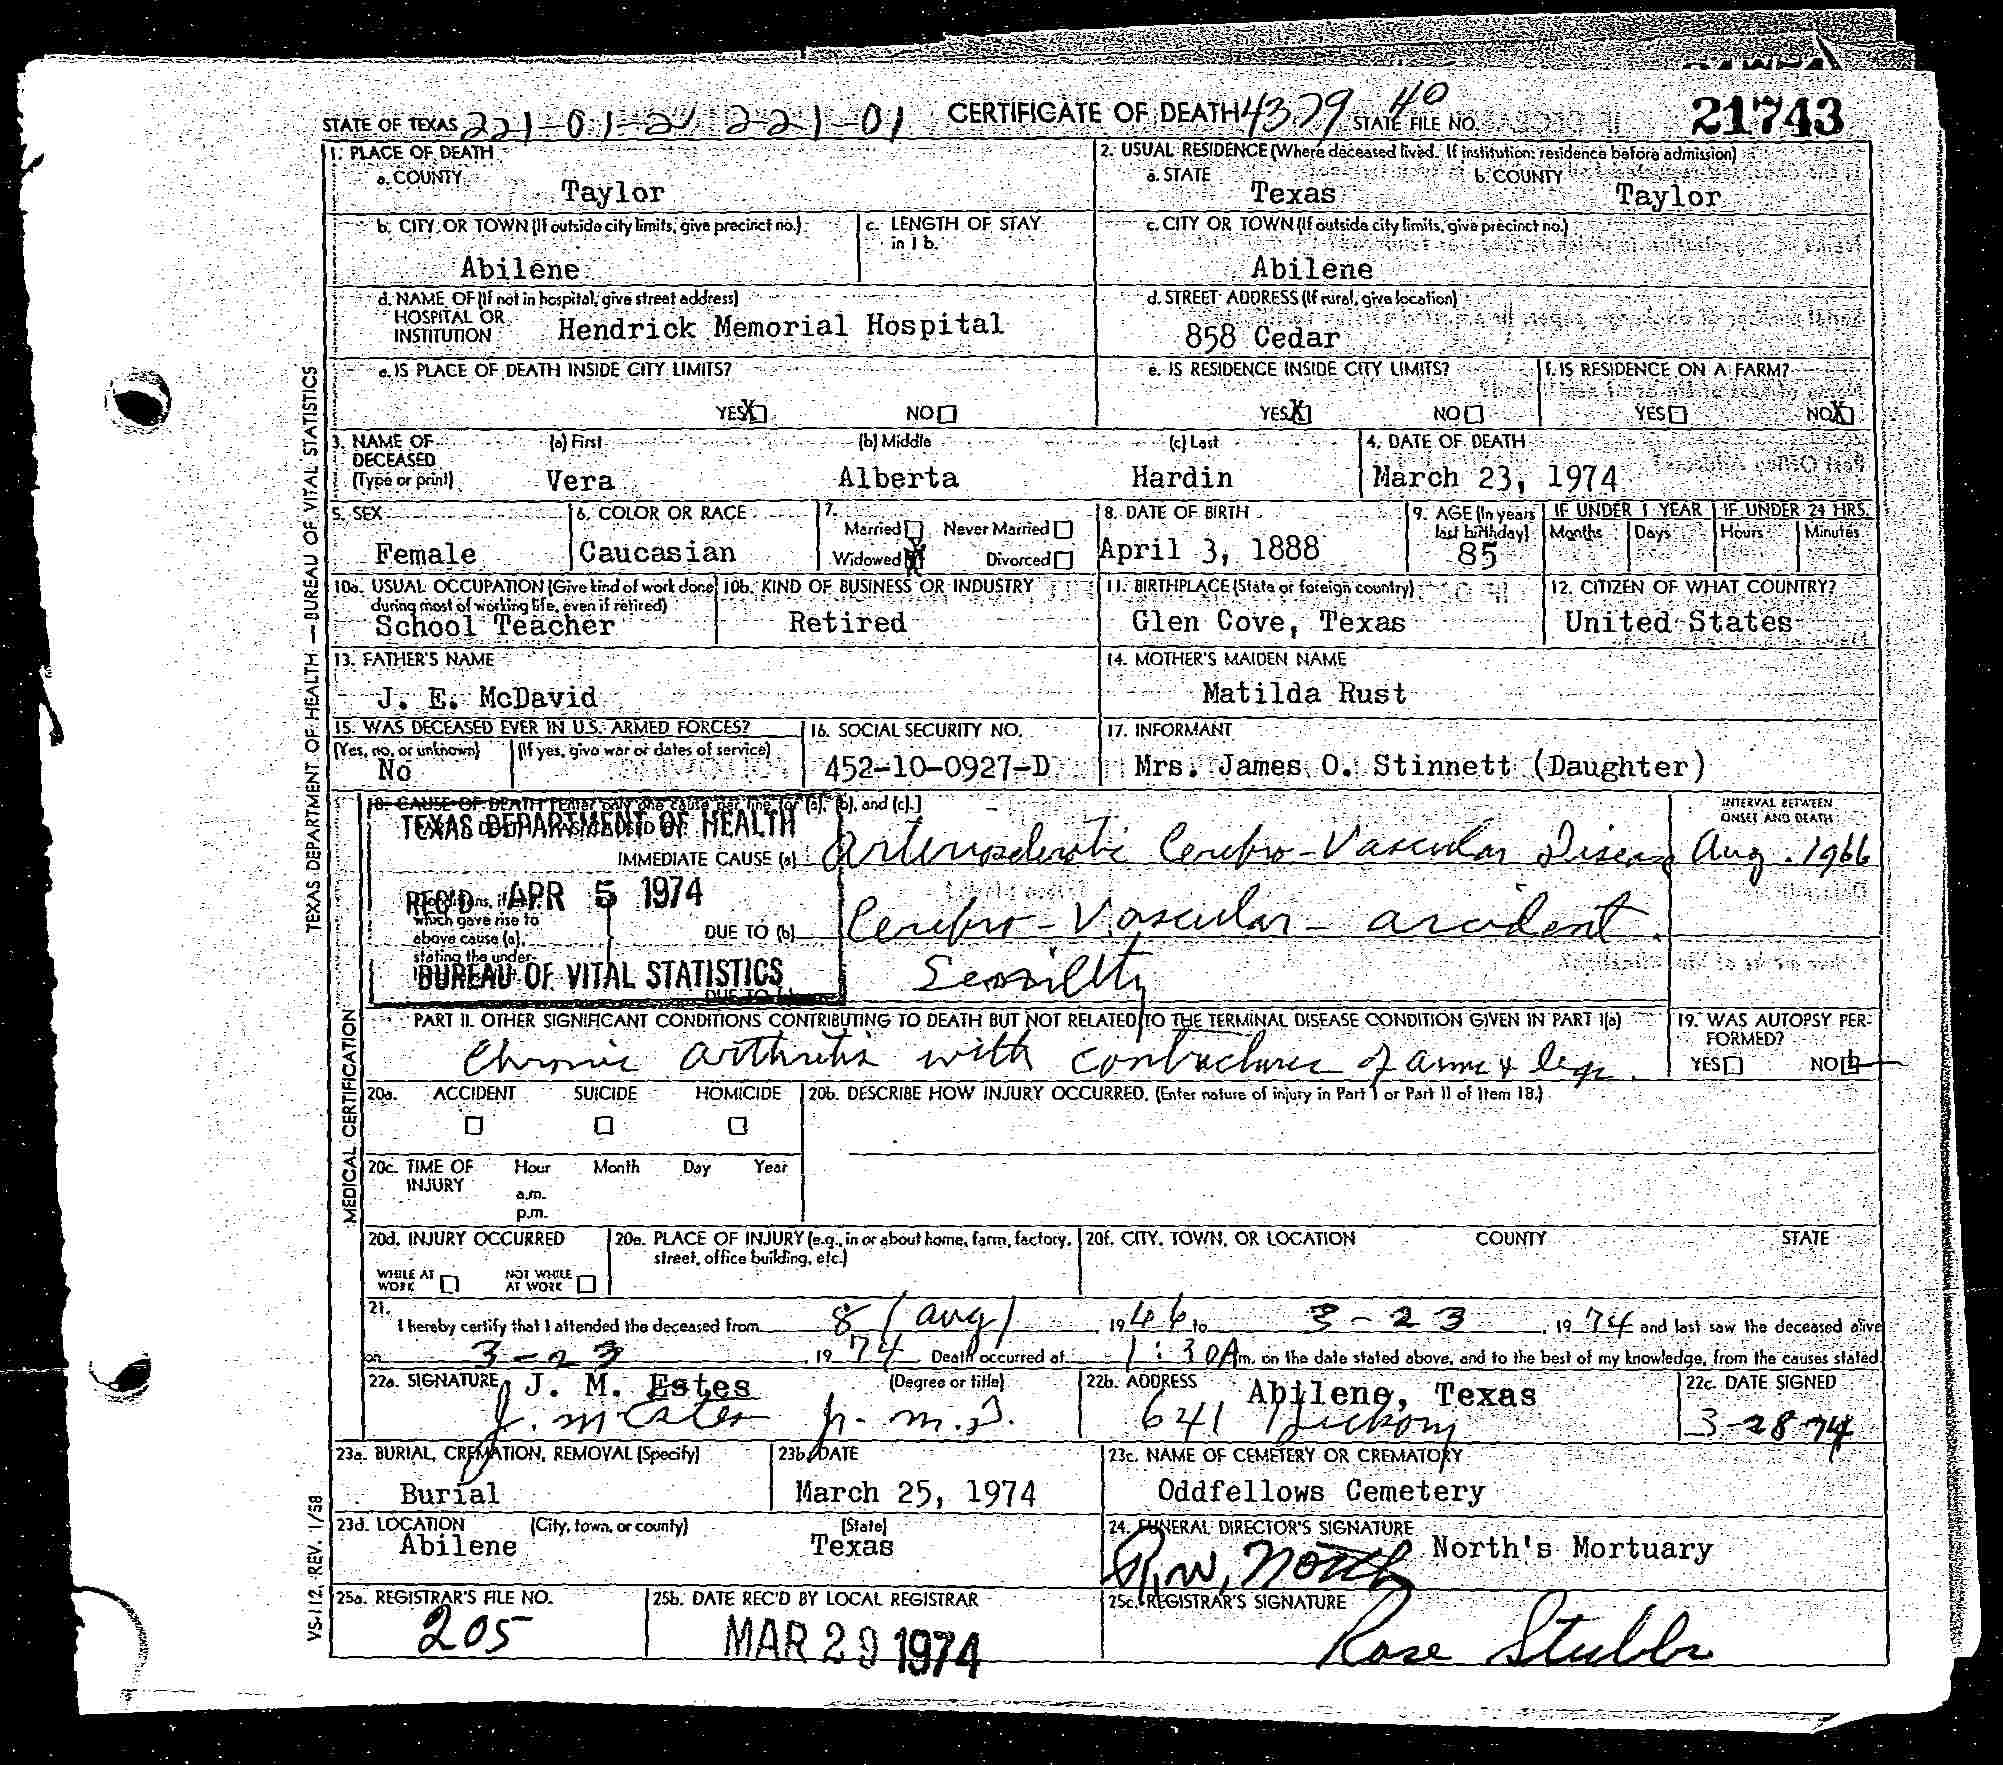 STATE OF TEXAS 221-01-2 2-21-01 CERTIFICATE OF DEATH 4379 40 STATE FILE NO. 21743
1. PLACE OF DEATH
a. COUNTY
Taylor
2. USUAL RESIDENCE (Where deceased lived. If institution: residence before admission)
a. STATE
Texas
b. COUNTY
Taylor
b. CITY OR TOWN (If outside city limits, give precinct no.)
Abilene
c. LENGTH OF STAY
in 1 b.
c. CITY OR TOWN (If outside city limits, give precinct no.)
Abilene
d. NAME OF (If not in hospital, give street address)
HOSPITAL OR
INSTITUTION Hendrick Memorial Hospital
d. STREET ADDRESS (If rural, give location)
858 Cedar
e. IS PLACE OF DEATH INSIDE CITY LIMITS?
YES X NO
e. IS RESIDENCE INSIDE CITY LIMITS?
YES X NO
f. IS RESIDENCE ON A FARM?
YES NO X
3. NAME OF DECEASED (Type or print)
(a) First (b) Middle (c) Last
Vera Alberta Hardin
4. DATE OF DEATH
March 23, 1974
5. SEX
Female
6. COLOR OR RACE
Caucasian
7.
Married Never Married
Widowed X Divorced
8. DATE OF BIRTH
April 3, 1888
9. AGE (In years last birthday)
85
IF UNDER 1 YEAR
Months Days
IF UNDER 24 HRS.
Hours Minutes
10a. USUAL OCCUPATION (Give kind of work done
during most of working life, even if retired)
School Teacher
10b. KIND OF BUSINESS OR INDUSTRY
Retired
11. BIRTHPLACE (State or foreign country)
Glen Cove, Texas
12. CITIZEN OF WHAT COUNTRY?
United States
13. FATHER'S NAME
J. E. McDavid
14. MOTHER'S MAIDEN NAME
Matilda Rust
15. WAS DECEASED EVER IN U.S. ARMED FORCES?
(Yes, no, or unknown) (If yes, give war or dates of service)
No
16. SOCIAL SECURITY NO.
452-10-0927-D
17. INFORMANT
Mrs. James O. Stinnett (Daughter)
18. CAUSE OF DEATH [Enter only one cause per line for (a), (b), and (c).]
INTERVAL BETWEEN
ONSET AND DEATH
TEXAS DEPARTMENT OF HEALTH
IMMEDIATE CAUSE (a) Arteriosclerotic Cerebro-Vascular Disease Aug. 1966
REC'D APR 5 1974
which gave rise to
above cause (a),
stating the under-
DUE TO (b) Cerebro-Vascular-accident.
BUREAU OF VITAL STATISTICS
DUE TO
PART II. OTHER SIGNIFICANT CONDITIONS CONTRIBUTING TO DEATH BUT NOT RELATED TO THE TERMINAL DISEASE CONDITION GIVEN IN PART I(a)
Chronic arthritis with contractures of arms & legs.
19. WAS AUTOPSY PER-
FORMED?
YES NO
20a. ACCIDENT SUICIDE HOMICIDE
20b. DESCRIBE HOW INJURY OCCURRED. (Enter nature of injury in Part I or Part II of Item 18.)
20c. TIME OF
INJURY
Hour Month Day Year
a.m.
p.m.
20d. INJURY OCCURRED
WHILE AT
WORK
NOT WHILE
AT WORK
20e. PLACE OF INJURY (e.g., in or about home, farm, factory,
street, office building, etc.)
20f. CITY, TOWN, OR LOCATION COUNTY STATE
21.
I hereby certify that I attended the deceased from 8 (Aug) 1966 to 3-23, 1974 and last saw the deceased alive
on 3-23, 1974 Death occurred at 1:30 A m. on the date stated above, and to the best of my knowledge, from the causes stated.
22a. SIGNATURE J. M. Estes (Degree or title)
J. M. Estes Jr. M.D.
22b. ADDRESS Abilene, Texas
641 Hickory
22c. DATE SIGNED
3-28-74
23a. BURIAL, CREMATION, REMOVAL (Specify)
Burial
23b. DATE
March 25, 1974
23c. NAME OF CEMETERY OR CREMATORY
Oddfellows Cemetery
23d. LOCATION (City, town, or county) (State)
Abilene Texas
24. FUNERAL DIRECTOR'S SIGNATURE
R.W. North North's Mortuary
25a. REGISTRAR'S FILE NO.
205
25b. DATE REC'D BY LOCAL REGISTRAR
MAR 29 1974
25c. REGISTRAR'S SIGNATURE
Rose Stubbs
TEXAS DEPARTMENT OF HEALTH — BUREAU OF VITAL STATISTICS
MEDICAL CERTIFICATION
VS-112, REV. 1/58